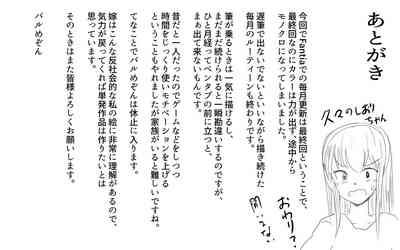 あとがき
今回でFantiaでの毎月更新は最終回ということで、
最終回なのにカラーは力が出ず、途中から
モノクロになってしまいました。
遅筆で出ないでないといいながら描き続けた
毎月のルーティーンも終わりです。
筆が乗るときは一気に描けるし、
まだまだ続けられると一瞬勘違いするのですが、
ひと月経ってペンタブの前に立つと、
まぁ出て来ないもんです。
昔だと一人だったのでゲームなどをしつつ
時間をじっくり使いモチベーションを上げる
ということもやれましたが家族がいると難しいですね。
てなことでバルめぞんは休止に入ります。
嫁はこんな反社会的な私の絵に非常に理解があるので、
気力が戻ってくれば単発作品は作りたいとは
思っています。
そのときはまた皆様よろしくお願いします。
バルめぞん
久々のしおり
ちゃん
おわり?
聞いてな